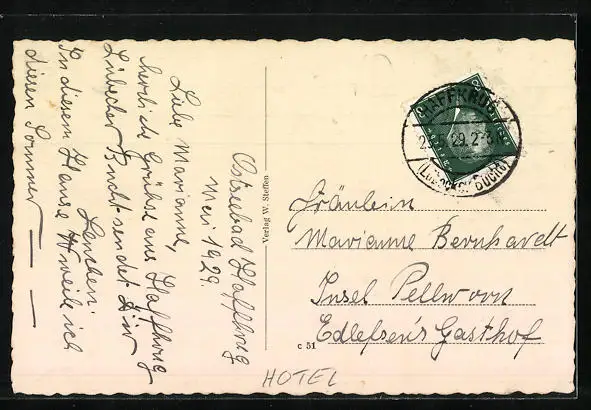 Ostseebad Haffkrug
Mai 1929.
Liebe Marianne,
herzliche Grüße aus Haffkrug
Lübecker Bucht sendet Dir
Lenchen.
In diesem Hause weile ich
diesen Sommer
Verlag W. Steffen
c 51
HAFFKRUG
29.2-3
(LÜBECKER BUCHT)
Fräulein
Marianne Bernhardt
Insel Pellworm
Edlefsen's Gasthof
HOTEL